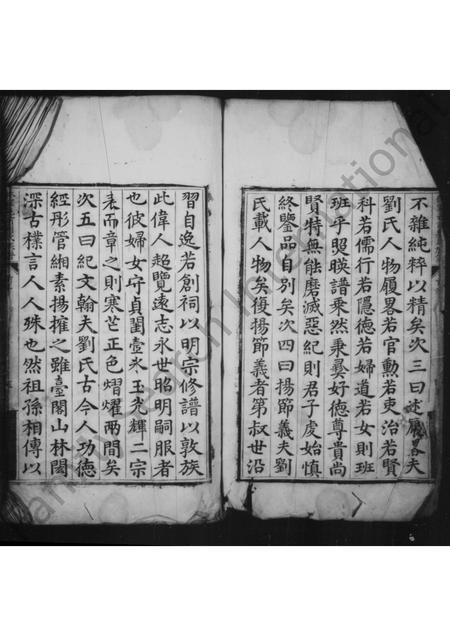 不雜純粹以精矣次三曰述履畧夫
劉氏人物履畧若官勲若吏治若賢
科若儒行若隱德若婦道若女則班
班乎照暎譜乗然秉彞好德尊貴尚
賢特無能磨滅惡紀則君子處始慎
終鑒品自别矣次四曰揚節義夫劉
氏載人物矣復揚節義者第叔世沿
習自逸若創祠以明宗修譜以敦族
此偉人超覽遠志永世昭明嗣服者
也彼婦女守貞閨壼氷玉光輝二宗
表而章之則寒芒正色熠燿兩間矣
次五曰紀文翰夫劉氏古今人功德
經彤管緗素揚搉之雖臺閣山林閎
深古樸言人人殊也然祖孫相傳以